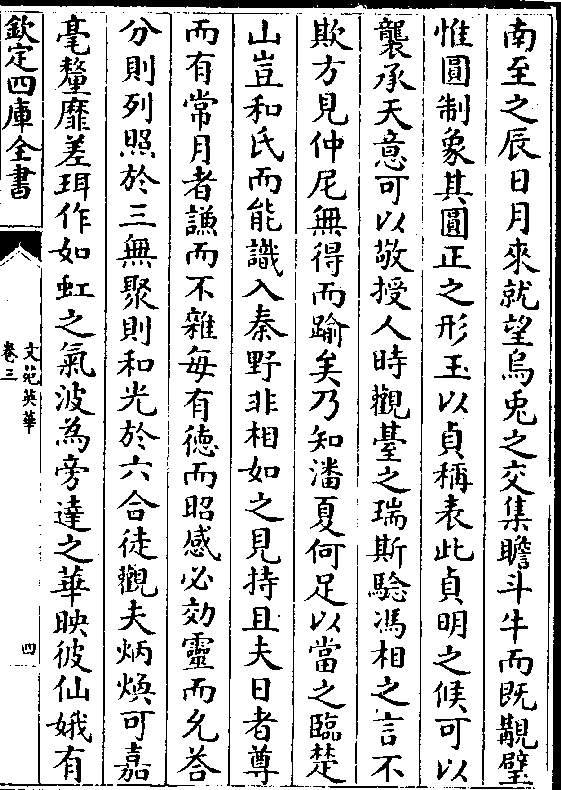 南至之辰日月來就望烏兎之交集瞻斗牛而既覩璧
惟圓制象其圓正之形玉以貞稱表此貞明之候可以
襲承天意可以敬授人時觀臺之瑞斯驗馮相之言不
欺方見仲尼無得而踰矣乃知潘夏何足以當之臨楚
山豈和氏而能識入秦野非相如之見持且夫日者尊
而有常月者謙而不雜每有徳而昭感必効靈而允荅
分則列照於三無聚則和光於六合徒觀夫炳煥可嘉
毫釐靡差珥作如虹之氣波為旁達之華映彼仙娥有
欽定四庫全書
文苑英華
卷三
四